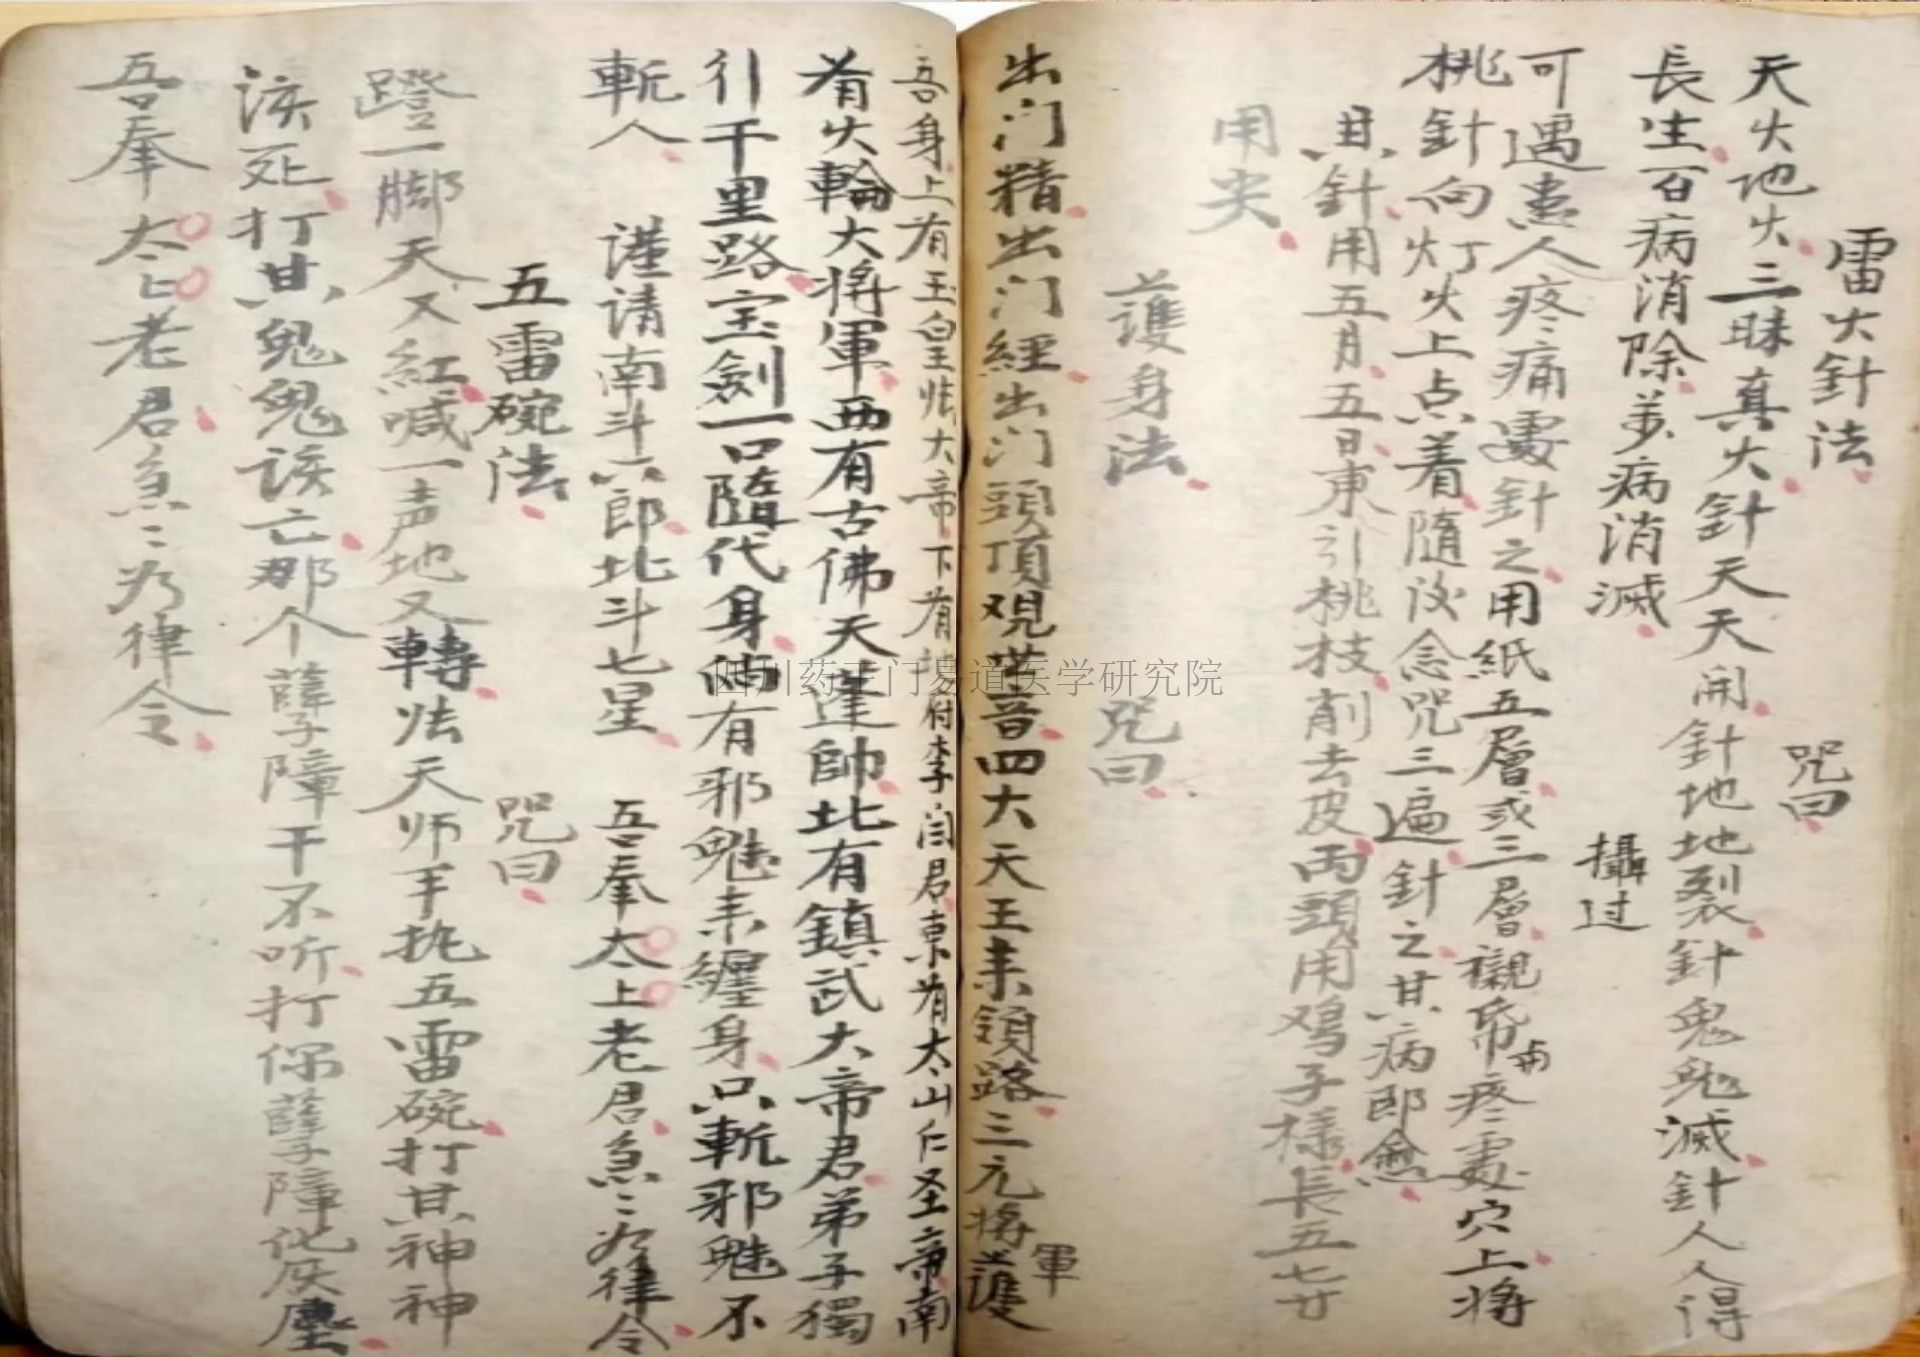 雷火針法 咒曰
天火地火三昧真火針天天開針地地裂針鬼鬼滅針人人得
長生百病消除萬病消滅 攝过
可遇患人疼痛處針之用紙五層或三層襯布疼處穴上将
桃針向灯火上点着隨後念咒三遍針之其病即愈
其針用五月五日東引桃枝削去皮両頭用鸡子樣長五七寸
用尖
護身法 咒曰
出门精出门經出门頭頂观世音四大天王来領路三元将軍護
吾身上有玉皇張大帝下有地府李闫君東有太山仁圣帝南
有火輪大将軍西有古佛天蓬帥北有鎮武大帝君弟子獨
行千里路宝劍一口隨代身倘有邪魅来纏身只斬邪魅不
斬人 謹请南斗六郎北斗七星 吾奉太上老君急〻为律令
五雷碗法 咒曰
蹬一脚天又紅喊一声地又轉張天师手执五雷碗打其神神
该死打其鬼鬼该亡那个孽障干不听打你孽障化灰塵
吾奉太上老君急〻为律令
四川药王门易道医学研究院